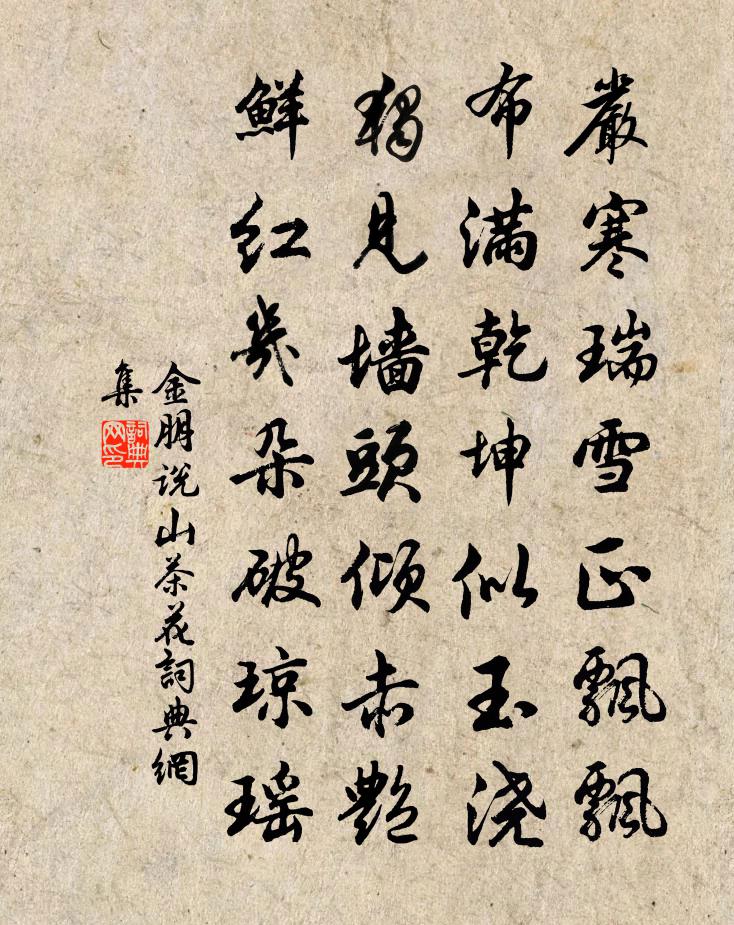 嚴寒瑞雪正飄飄
布滿乾坤似玉澆
獨見墻頭傾赤艷
鮮紅幾朵破琼瑶
金朋说山茶花詞典網
集
詞典
网印